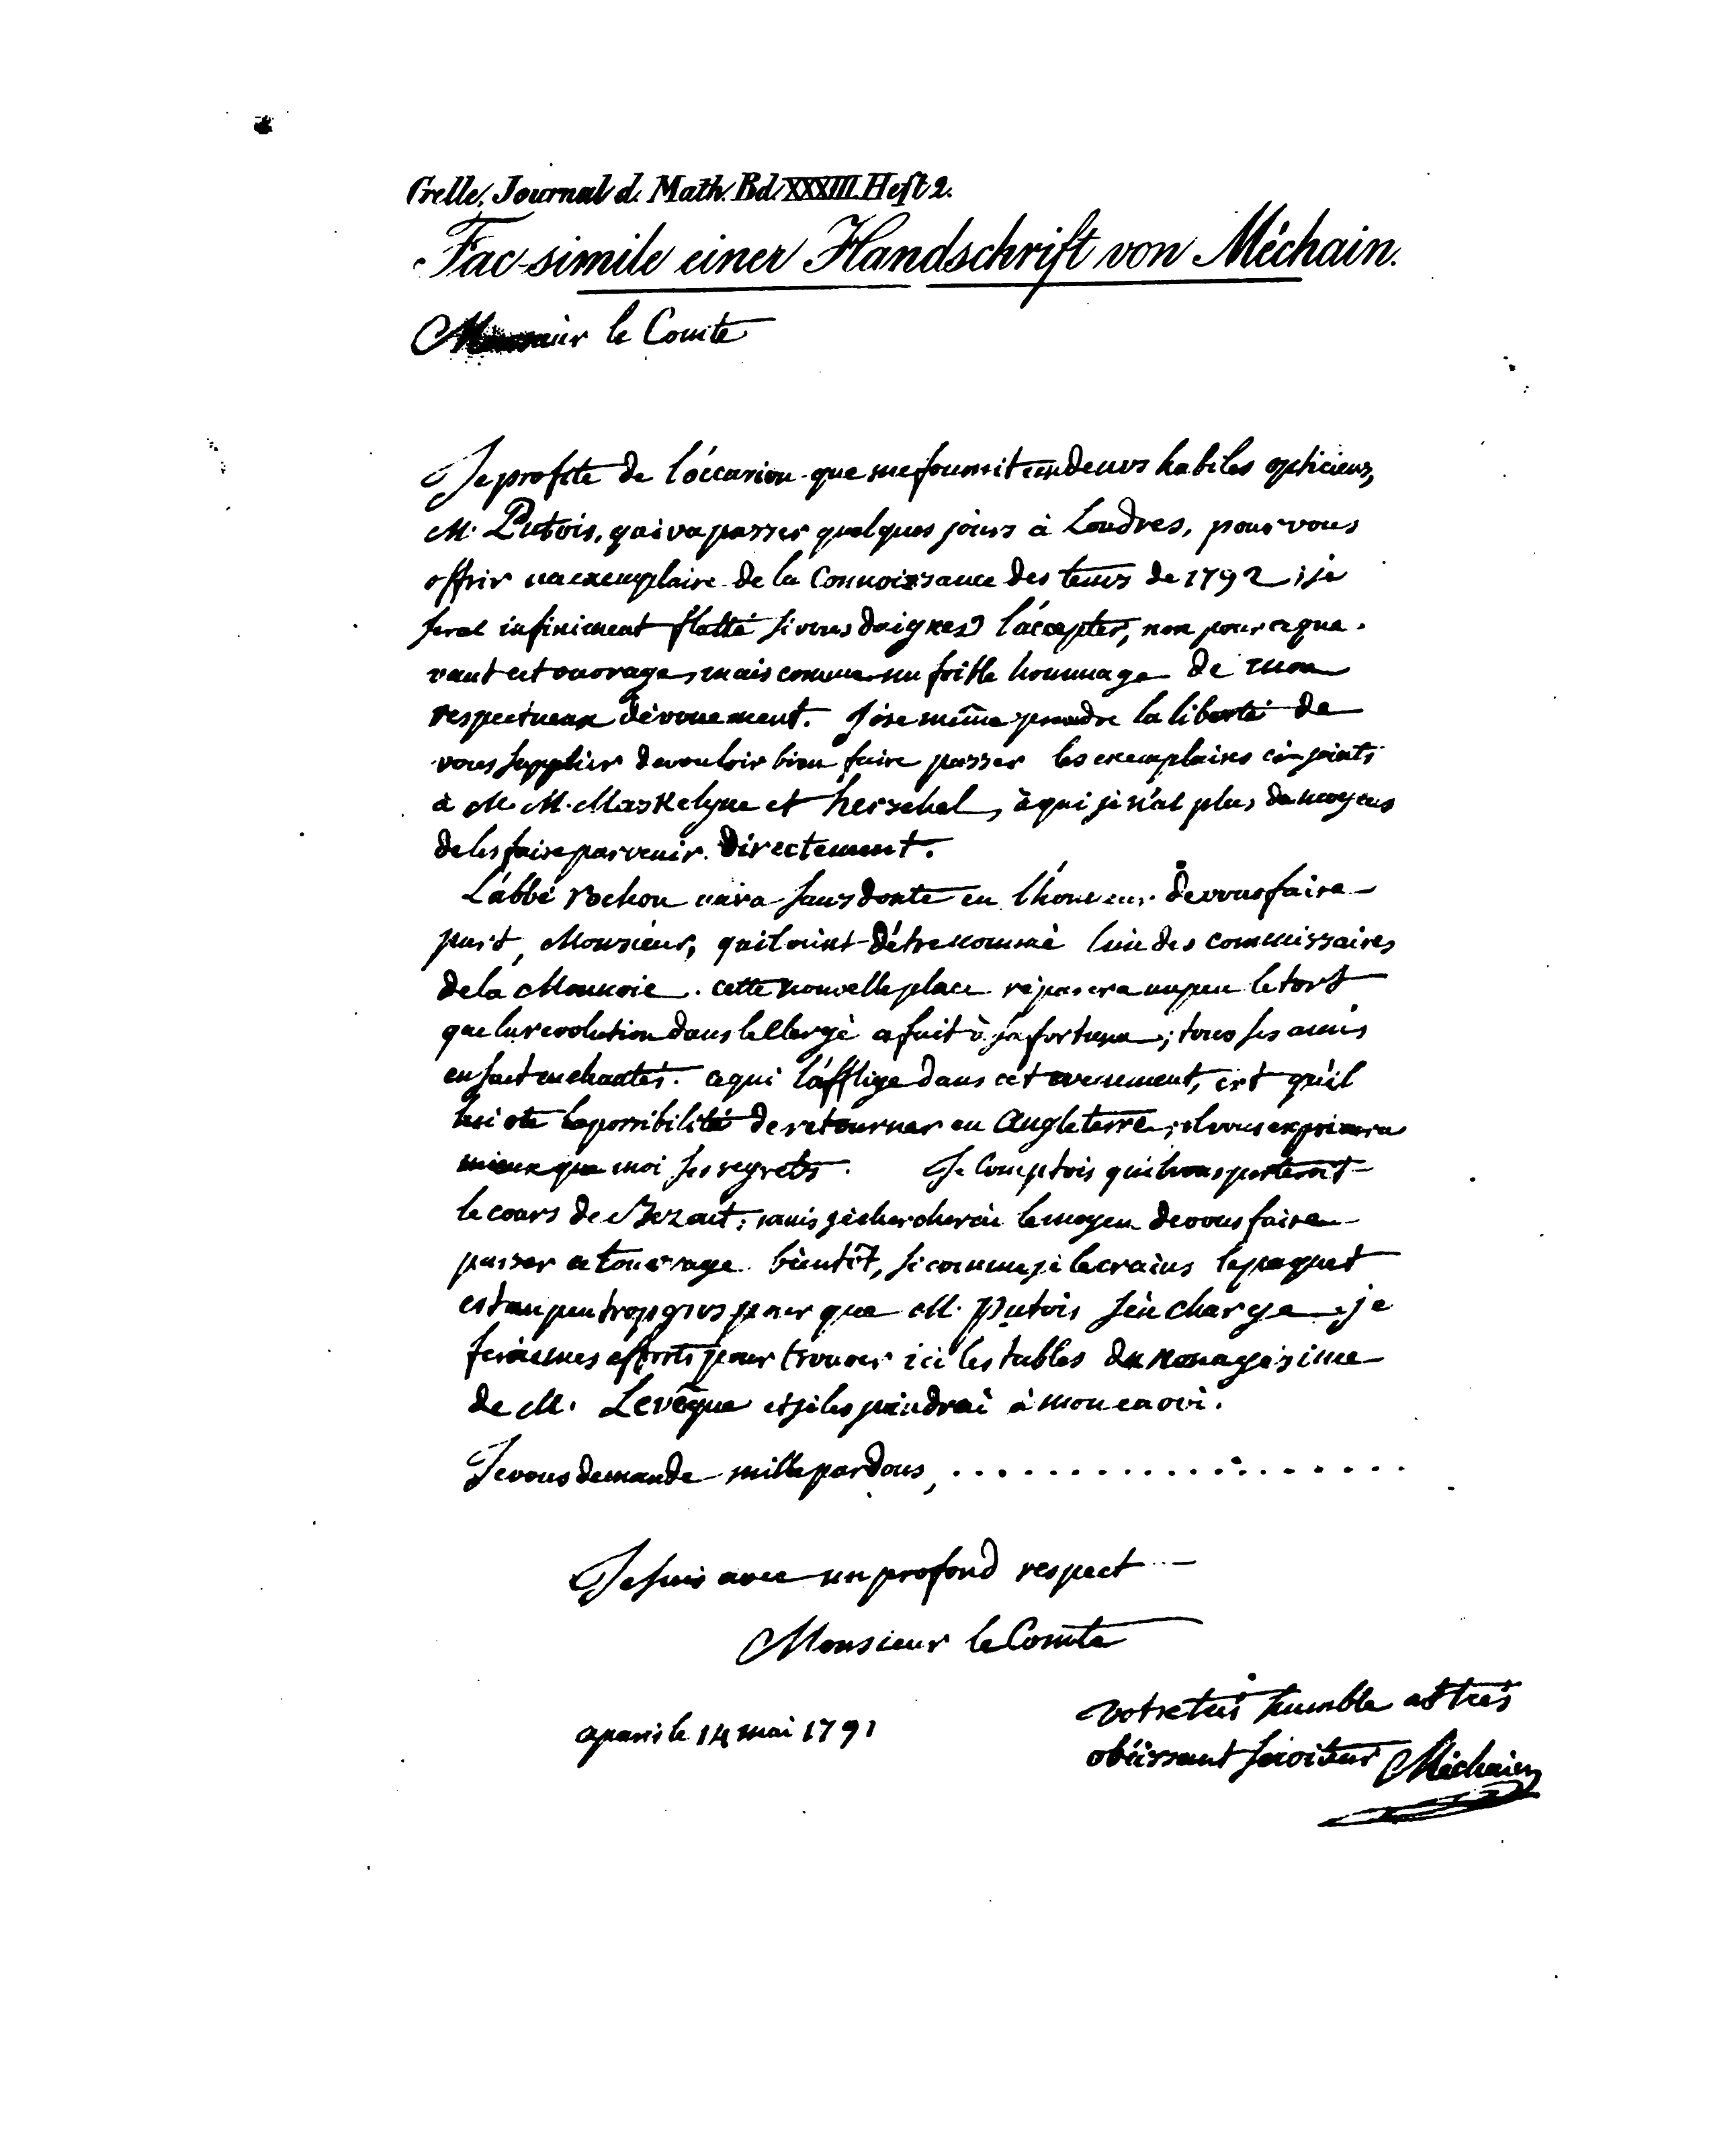 Crelle, Journal d. Math. Bd. XXXIII. Heft 2.
Fac-simile einer Handschrift von Méchain.
Monsieur le Comte
Je profite de l'óccasion que me fournit un de nos habiles opticiens,
M. Putois, qui va passer quelques jours à Londres, pour vous
offrir un exemplaire de la Connoissance des tems de 1792; je
serai infiniment flatté si vous daignes l'áccepter, non pour ce que
vaut cet ouvrage, mais comme un foible hommage de mon
respectueux dévouement. J'ose même prendre la liberté de
vous supplier de vouloir bien faire passer les exemplaires cy joints
à M. M. Maskelyne et herschel, à qui je n'ai plus de moyens
de les faire parvenir directement.
L'ábbé rochon aura sans doute eu l'honneur de vous faire
part, Monsieur, qu'il vient d'étre nommé l'un des commissaires
de la Monnoie. cette nouvelle place réparera un peu le tort
que la revolution dans le Clergé a fait à sa fortune; tous ses amis
en sont enchantés. ce qui l'áfflige dans cét evenement, c'est qu'il
lui ote la possibilité de retourner en Angleterre; il vous exprimera
mieux que moi ses regrets. Je Comptois qu'il vous porteroit
le cours de Bezout; mais je chercherai le moyen de vous faire
passer cet ouvrage bientôt, si comme je le crains le paquet
est un peu trop gros pour que M. Putois s'en charge. je
ferai mes efforts pour trouver ici les tables du nonagésime
de M. Levêque et je les joindrai à mon envoi.
Je vous demande mille pardons, . . . . . . . . . . . . . . . . . . .
Je suis avec un profond respect
Monsieur le Comte
votre tres humble et tres
a paris le 14 mai 1791
obéissant serviteur Méchain